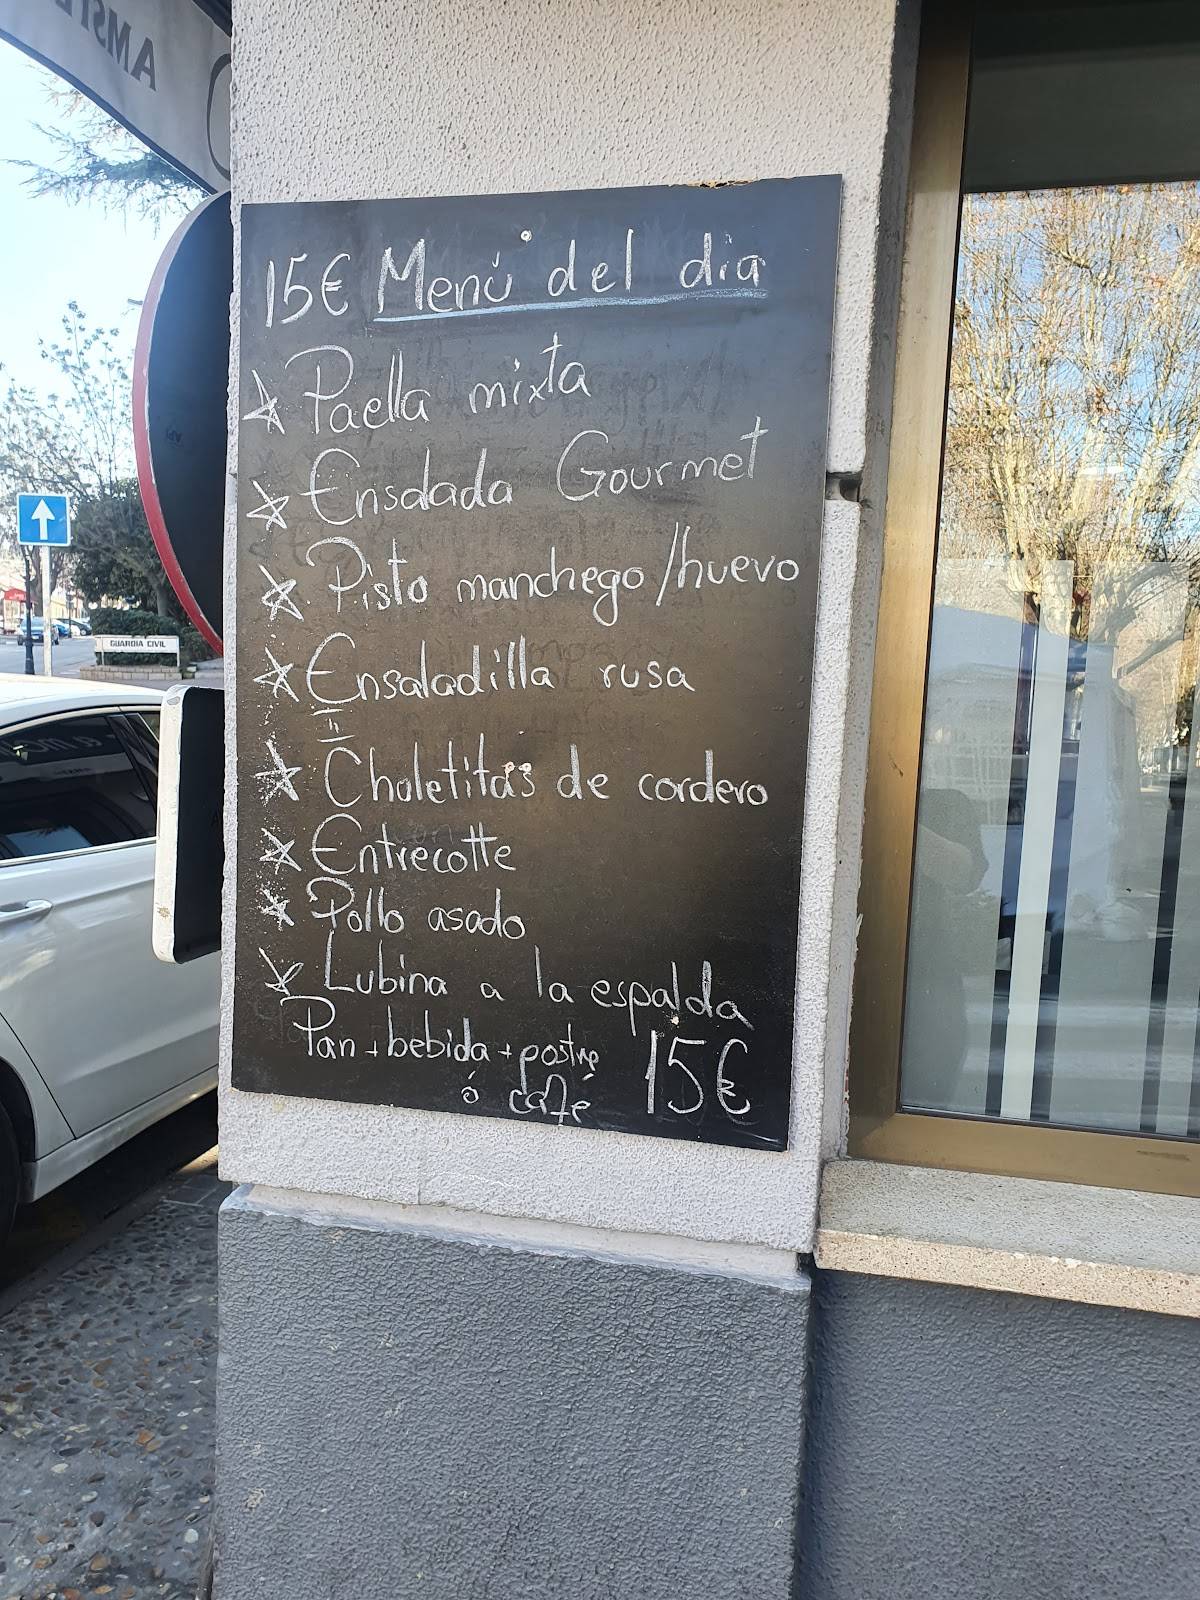 AMSTE
15€ Menú del dia
Paella mixta
Ensalada Gourmet
Pisto manchego/huevo
Ensaladilla rusa
Chuletitas de cordero
Entrecotte
Pollo asado
Lubina a la espalda
Pan + bebida + postre
ó café 15€
GUARDIA CIVIL